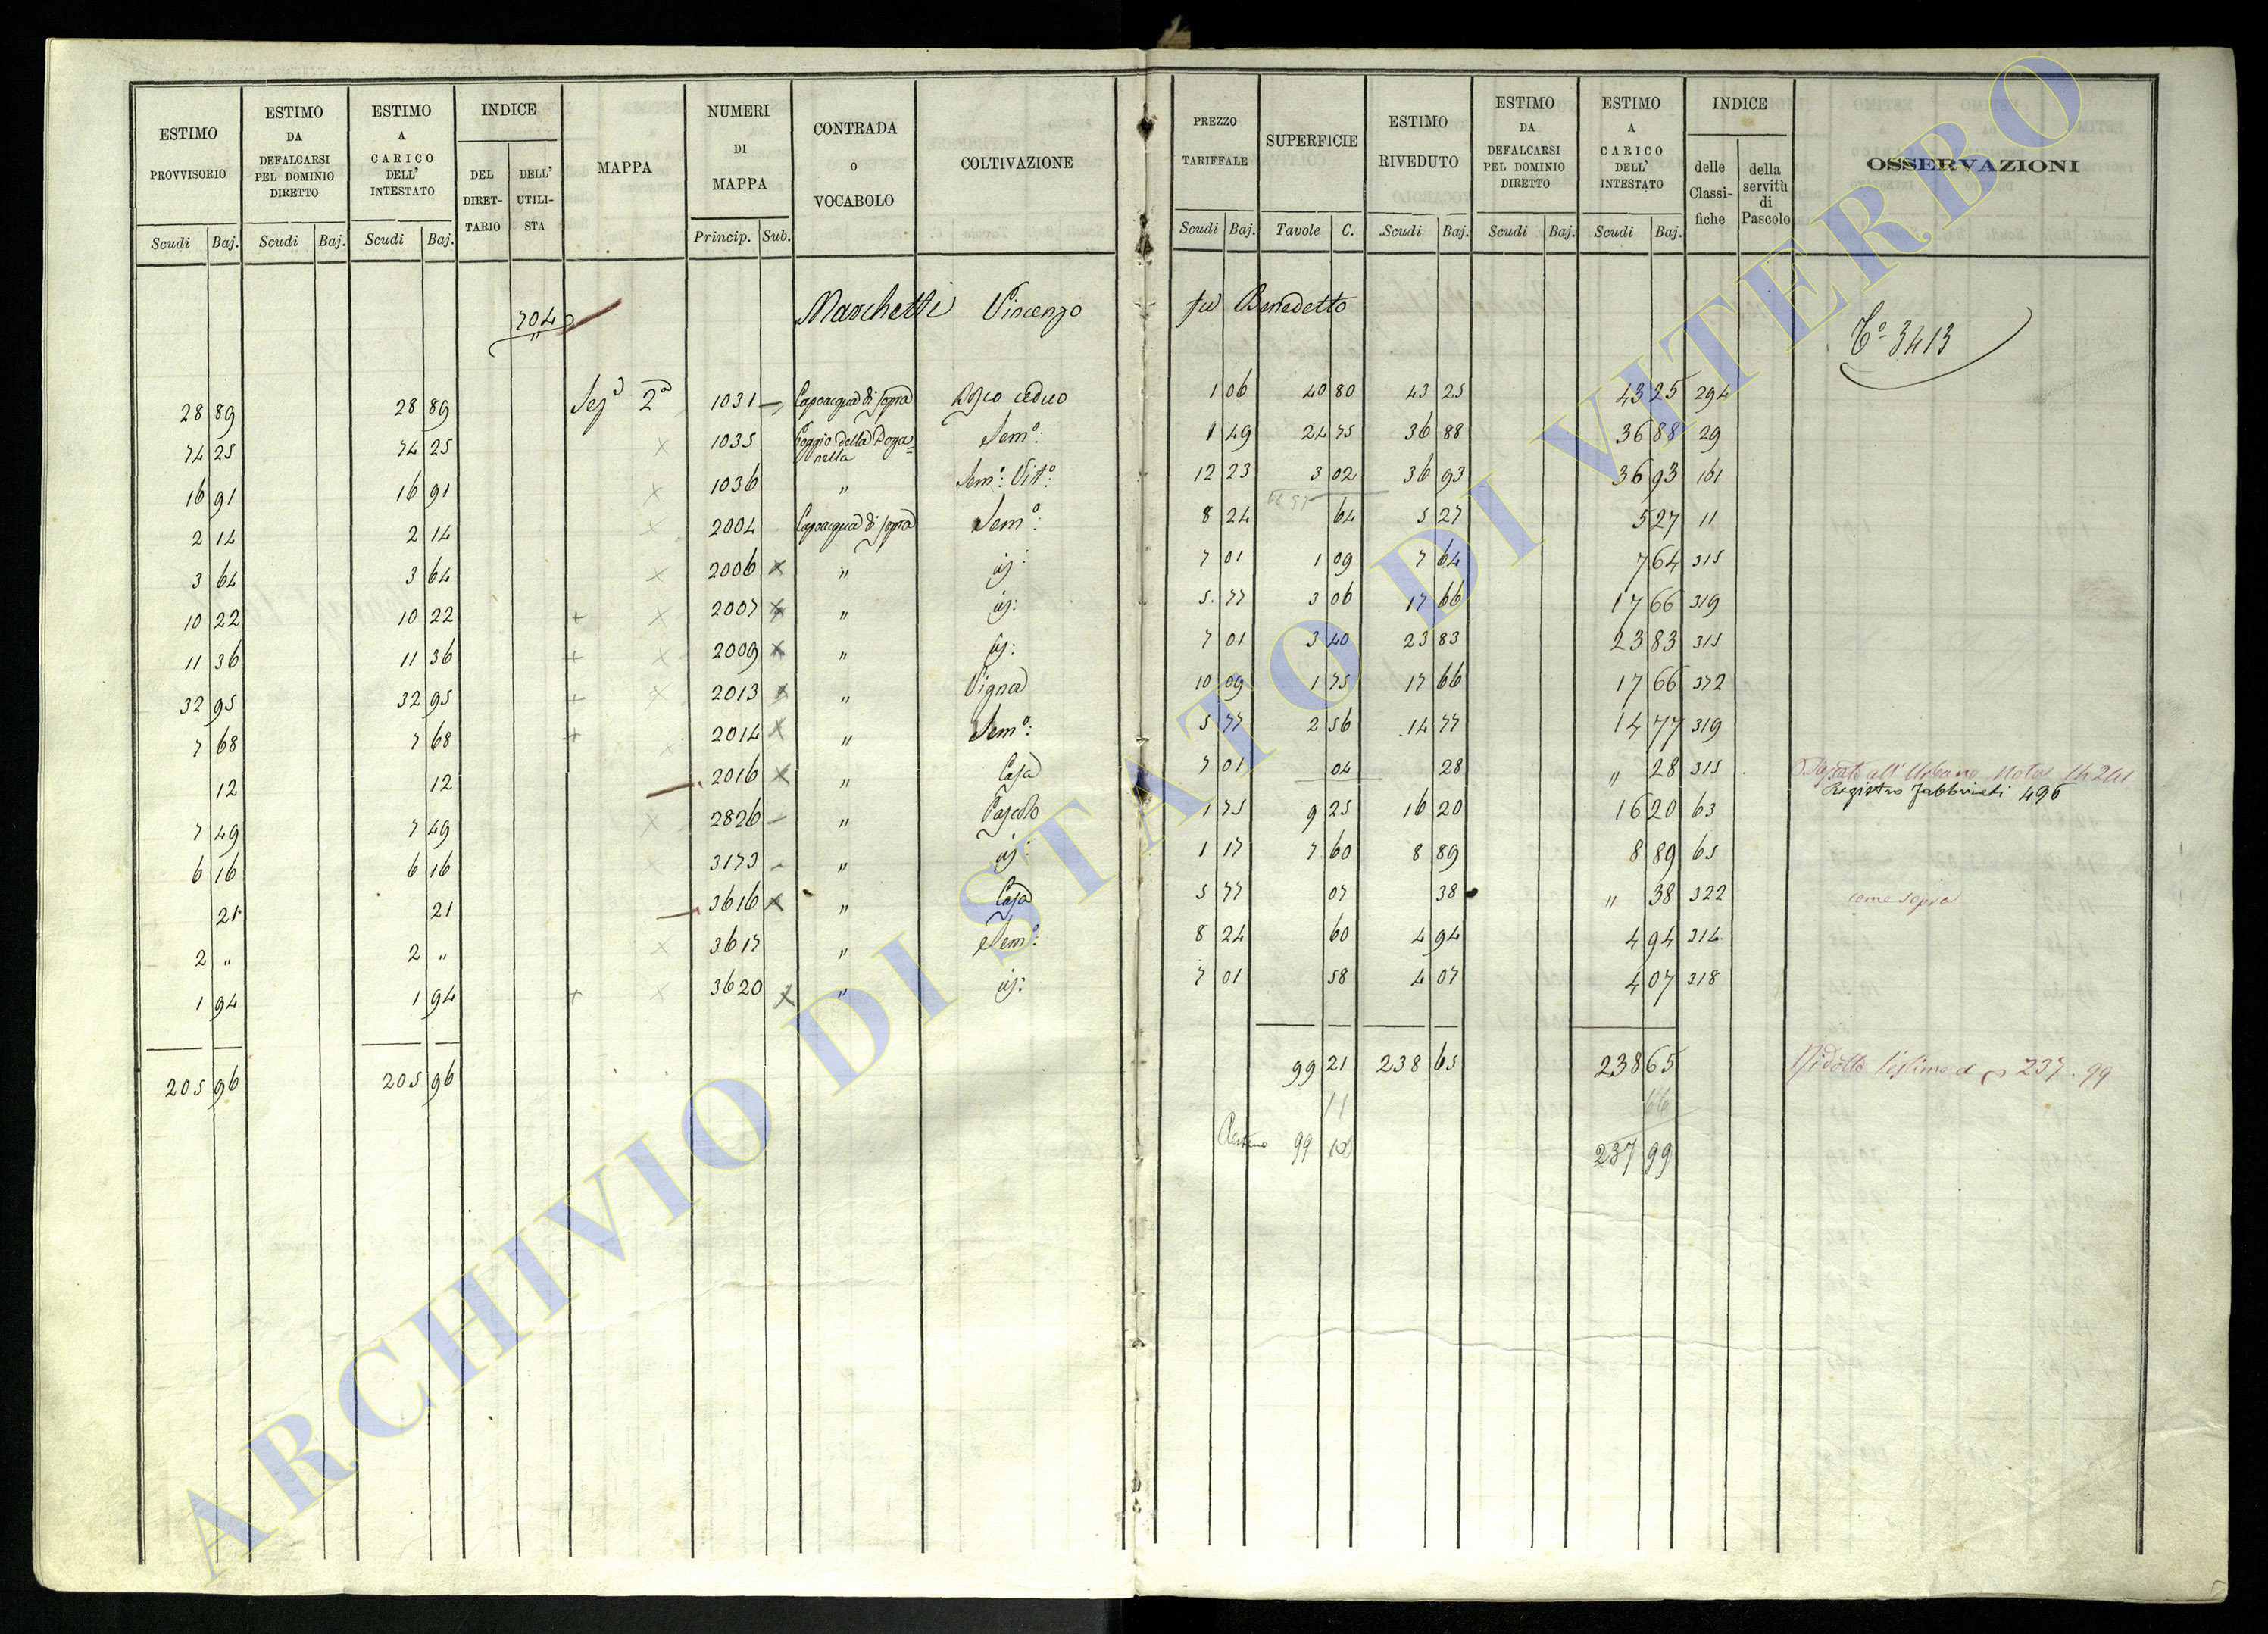 ESTIMO PROVVISORIO | ESTIMO DA DEFALCARSI PEL DOMINIO DIRETTO | ESTIMO A CARICO DELL' INTESTATO | INDICE DEL DIRET-TARIO | DELL' UTILI-STA | MAPPA | NUMERI DI MAPPA | CONTRADA o VOCABOLO | COLTIVAZIONE | PREZZO TARIFFALE | SUPERFICIE | ESTIMO RIVEDUTO | ESTIMO DA DEFALCARSI PEL DOMINIO DIRETTO | ESTIMO A CARICO DELL' INTESTATO | INDICE delle Classi-fiche | della servitù di Pascolo | OSSERVAZIONI
Scudi Baj. Scudi Baj. Scudi Baj. Princip. Sub. Scudi Baj. Tavole C. Scudi Baj. Scudi Baj. Scudi Baj.
704 Marchetti Vincenzo fu Benedetto
Co 3413
28 89 28 89 Seze 2a 1031 Capoacqua di sopra Bosco ceduo 1 06 40 80 43 25 43 25 294
74 25 74 25 1035 Poggio della Doga= nella Semo: 1 49 24 75 36 88 36 88 29
16 91 16 91 1036 " Semo: Vito: 12 23 3 02 36 93 36 93 161
2 14 2 14 2004 Capoacqua di sopra Semo: 8 24 64 5 27 5 27 11
3 64 3 64 2006 x " id: 7 01 1 09 7 64 7 64 315
10 22 10 22 + x 2007 x " id: 5 77 3 06 17 66 17 66 319
11 36 11 36 + x 2009 x " id: 7 01 3 40 23 83 23 83 315
32 95 32 95 + x 2013 x " Vigna 10 09 1 75 17 66 17 66 372
7 68 7 68 + x 2014 x " Semo: 5 77 2 56 14 77 14 77 319
12 12 2016 x " Casa 7 01 04 28 " 28 315 Passato all' Urbano Nota
Registro Fabbricati 496
7 49 7 49 2826 " Pascolo 1 75 9 25 16 20 16 20 63
6 16 6 16 3173 " id: 1 17 7 60 8 89 8 89 65
21 21 3616 x " Casa 5 77 07 38 " 38 322 come sopra
2 " 2 " 3617 " Semo: 8 24 60 4 94 4 94 314
1 94 1 94 + x 3620 x " id: 7 01 58 4 07 4 07 318
205 96 205 96 99 21 238 65 238 65 Ridotto l'estimo a 237.99
11 66
Restano 99 10 237 99
ARCHIVIO DI STATO DI VITERBO